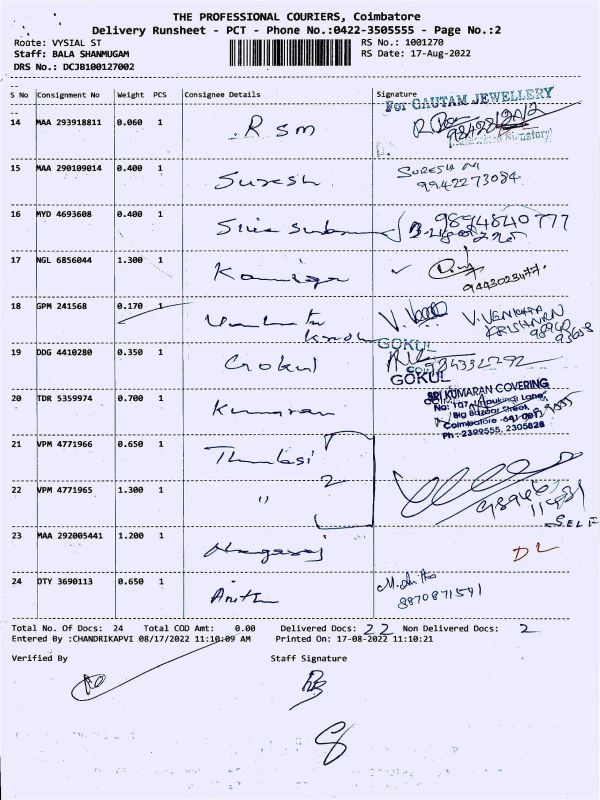 THE PROFESSIONAL COURIERS, Coimbatore
Delivery Runsheet - PCT - Phone No.:0422-3505555 - Page No.:2
Roote: VYSIAL ST
RS No.: 1001270
Staff: BALA SHANMUGAM
RS Date: 17-Aug-2022
DRS No.: DCJB100127002
S No Consignment No Weight PCS Consignee Details Signature
For GAUTAM JEWELLERY
14 MAA 293918811 0.060 1 R S m
15 MAA 290109014 0.400 1 Suresh SURESH M
9942273084
16 MYD 4693608 0.400 1 9894840777
17 NGL 6856044 1.300 1 9443023477.
18 GPM 241568 0.170 1 V. VENKATA
KRISHNAN
GOKUL
19 DDG 4410280 0.350 1 Gokul 984332292
GOKUL
SRI KUMARAN COVERING
20 TDR 5359974 0.700 1 Kumaran
Big Bazaar Street,
Coimbatore - 641 001
Ph : 2399555, 2305828
21 VPM 4771966 0.650 1 Thulasi
2
22 VPM 4771965 1.300 1 "
SELF
23 MAA 292005441 1.200 1 Nagaraj DL
24 OTY 3690113 0.650 1 Anitha M. Anitha
8870871541
Total No. Of Docs: 24 Total COD Amt: 0.00 Delivered Docs: 22 Non Delivered Docs: 2
Entered By :CHANDRIKAPVI 08/17/2022 11:10:09 AM Printed On: 17-08-2022 11:10:21
Verified By Staff Signature
8